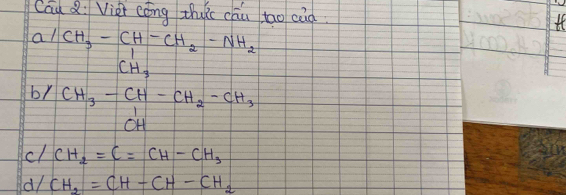 Câu 2: Viết công thức cấu tạo của.
a/ CH₃ - CH - CH₂ - NH₂
CH₃
b/ CH₃ - CH - CH₂ - CH₃
OH
c/ CH₂ = C = CH - CH₃
d/ CH₂ = CH - CH - CH₂